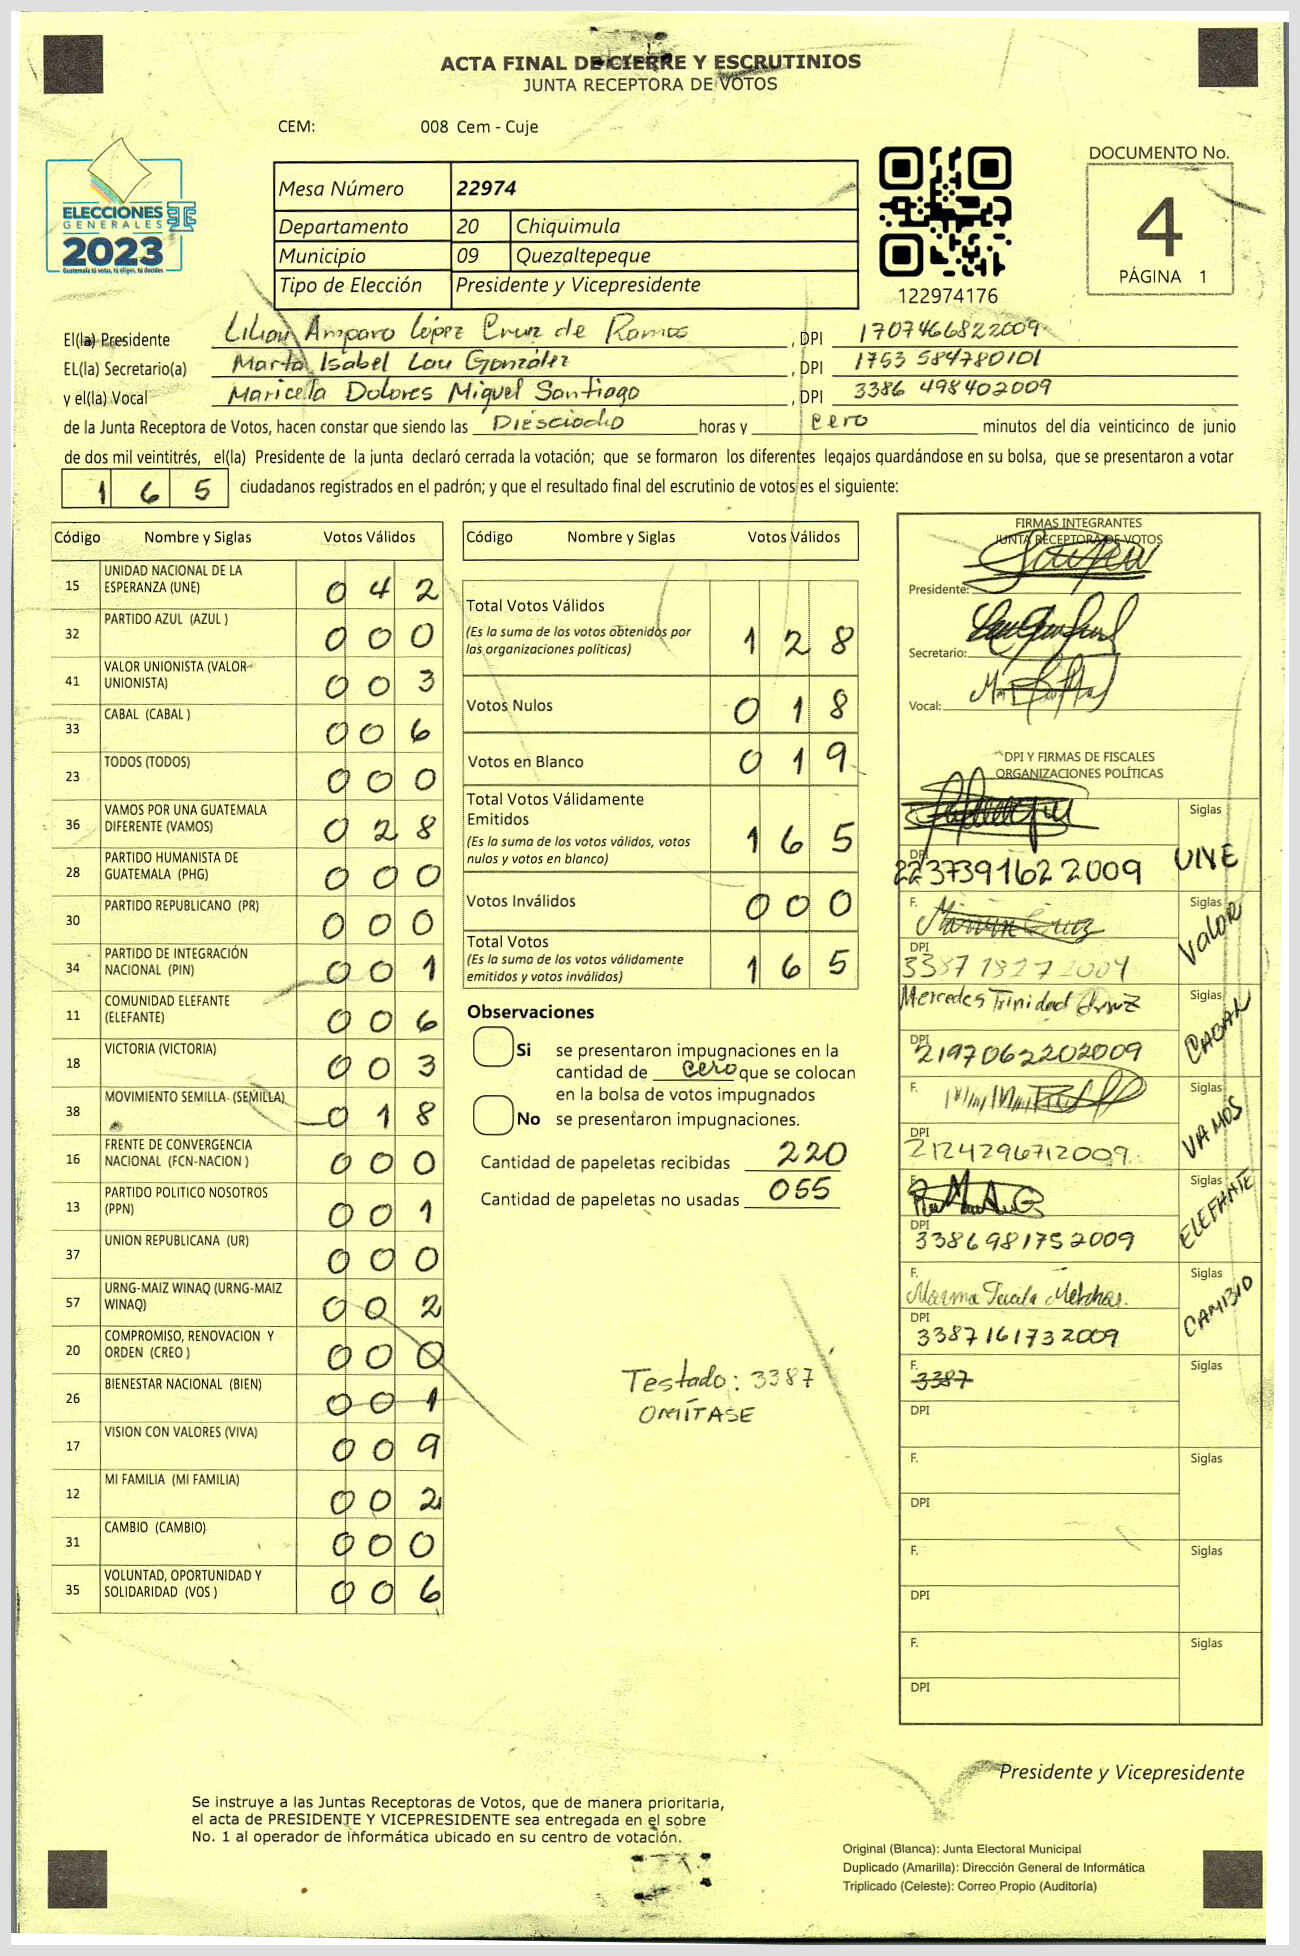 ACTA FINAL DE CIERRE Y ESCRUTINIOS
JUNTA RECEPTORA DE VOTOS
CEM: 008 Cem - Cuje
DOCUMENTO No.
4
PÁGINA 1
ELECCIONES
GENERALES
2023
Guatemala tú votas, tú eliges, tú decides
Mesa Número 22974
Departamento 20 Chiquimula
Municipio 09 Quezaltepeque
Tipo de Elección Presidente y Vicepresidente
122974176
El(la) Presidente Lilian Amparo López Cruz de Ramos, DPI 1707466822009
EL(la) Secretario(a) Marta Isabel Lau González, DPI 1753 584780101
y el(la) Vocal Maricela Dolores Miguel Santiago, DPI 3386 498402009
de la Junta Receptora de Votos, hacen constar que siendo las Diesciocho horas y cero minutos del día veinticinco de junio
de dos mil veintitrés, el(la) Presidente de la junta declaró cerrada la votación; que se formaron los diferentes legajos guardándose en su bolsa, que se presentaron a votar
165 ciudadanos registrados en el padrón; y que el resultado final del escrutinio de votos es el siguiente:
Código Nombre y Siglas Votos Válidos
15 UNIDAD NACIONAL DE LA ESPERANZA (UNE) 042
32 PARTIDO AZUL (AZUL ) 000
41 VALOR UNIONISTA (VALOR UNIONISTA) 003
33 CABAL (CABAL ) 006
23 TODOS (TODOS) 000
36 VAMOS POR UNA GUATEMALA DIFERENTE (VAMOS) 028
28 PARTIDO HUMANISTA DE GUATEMALA (PHG) 000
30 PARTIDO REPUBLICANO (PR) 000
34 PARTIDO DE INTEGRACIÓN NACIONAL (PIN) 001
11 COMUNIDAD ELEFANTE (ELEFANTE) 006
18 VICTORIA (VICTORIA) 003
38 MOVIMIENTO SEMILLA (SEMILLA) 018
16 FRENTE DE CONVERGENCIA NACIONAL (FCN-NACION ) 000
13 PARTIDO POLITICO NOSOTROS (PPN) 001
37 UNION REPUBLICANA (UR) 000
57 URNG-MAIZ WINAQ (URNG-MAIZ WINAQ) 002
20 COMPROMISO, RENOVACION Y ORDEN (CREO ) 000
26 BIENESTAR NACIONAL (BIEN) 001
17 VISION CON VALORES (VIVA) 009
12 MI FAMILIA (MI FAMILIA) 002
31 CAMBIO (CAMBIO) 000
35 VOLUNTAD, OPORTUNIDAD Y SOLIDARIDAD (VOS ) 006
Código Nombre y Siglas Votos Válidos
Total Votos Válidos 128
(Es la suma de los votos obtenidos por
las organizaciones políticas)
Votos Nulos 018
Votos en Blanco 019
Total Votos Válidamente
Emitidos 165
(Es la suma de los votos válidos, votos
nulos y votos en blanco)
Votos Inválidos 000
Total Votos 165
(Es la suma de los votos válidamente
emitidos y votos inválidos)
Observaciones
Si se presentaron impugnaciones en la
cantidad de cero que se colocan
en la bolsa de votos impugnados
No se presentaron impugnaciones.
Cantidad de papeletas recibidas 220
Cantidad de papeletas no usadas 055
Testado: 3387
OMÍTASE
FIRMAS INTEGRANTES
JUNTA RECEPTORA DE VOTOS
Presidente:
Secretario:
Vocal:
DPI Y FIRMAS DE FISCALES
ORGANIZACIONES POLÍTICAS
Siglas UNE
DPI 2237391622009
F. Siglas Valor
DPI 3387
Mercedes Trinidad Siglas CABAL
DPI 2197062202009
F. Siglas VAMOS
DPI 2124296712009
Siglas ELEFANTE
DPI 3386981752009
F. Siglas CAMBIO
DPI 3387161732009
F. 3387 Siglas
DPI
F. Siglas
DPI
F. Siglas
DPI
F. Siglas
DPI
Presidente y Vicepresidente
Se instruye a las Juntas Receptoras de Votos, que de manera prioritaria,
el acta de PRESIDENTE Y VICEPRESIDENTE sea entregada en el sobre
No. 1 al operador de informática ubicado en su centro de votación.
Original (Blanca): Junta Electoral Municipal
Duplicado (Amarilla): Dirección General de Informática
Triplicado (Celeste): Correo Propio (Auditoría)